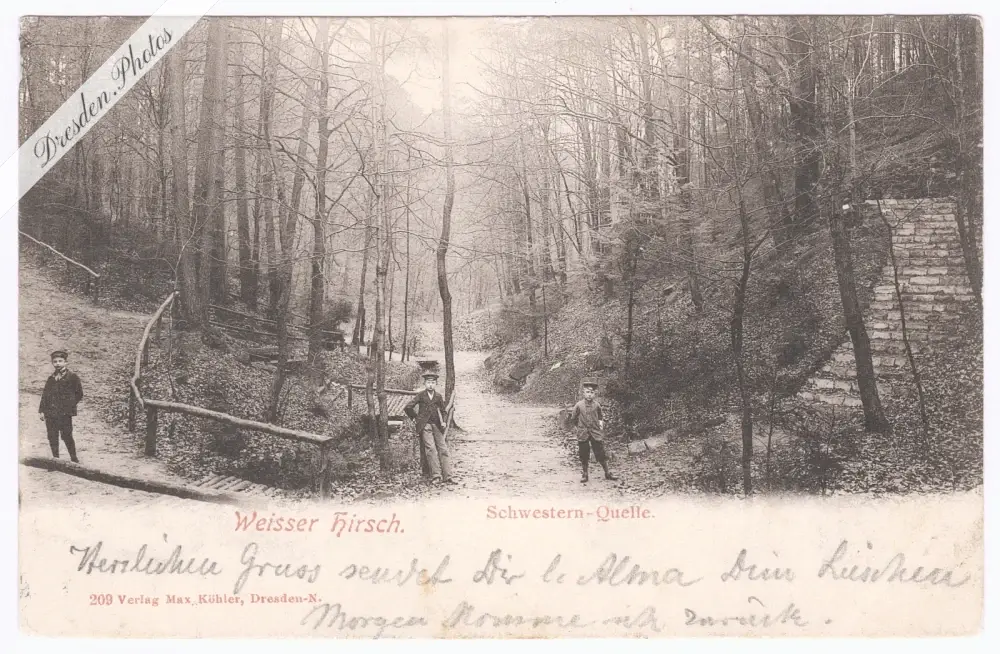 Dresden.Photos
Weisser Hirsch.
Schwestern-Quelle.
Herzlichen Gruss sendet Dir l. Alma Dein Lieschen
209 Verlag Max Köhler, Dresden-N.
Morgen komme ich zurück.